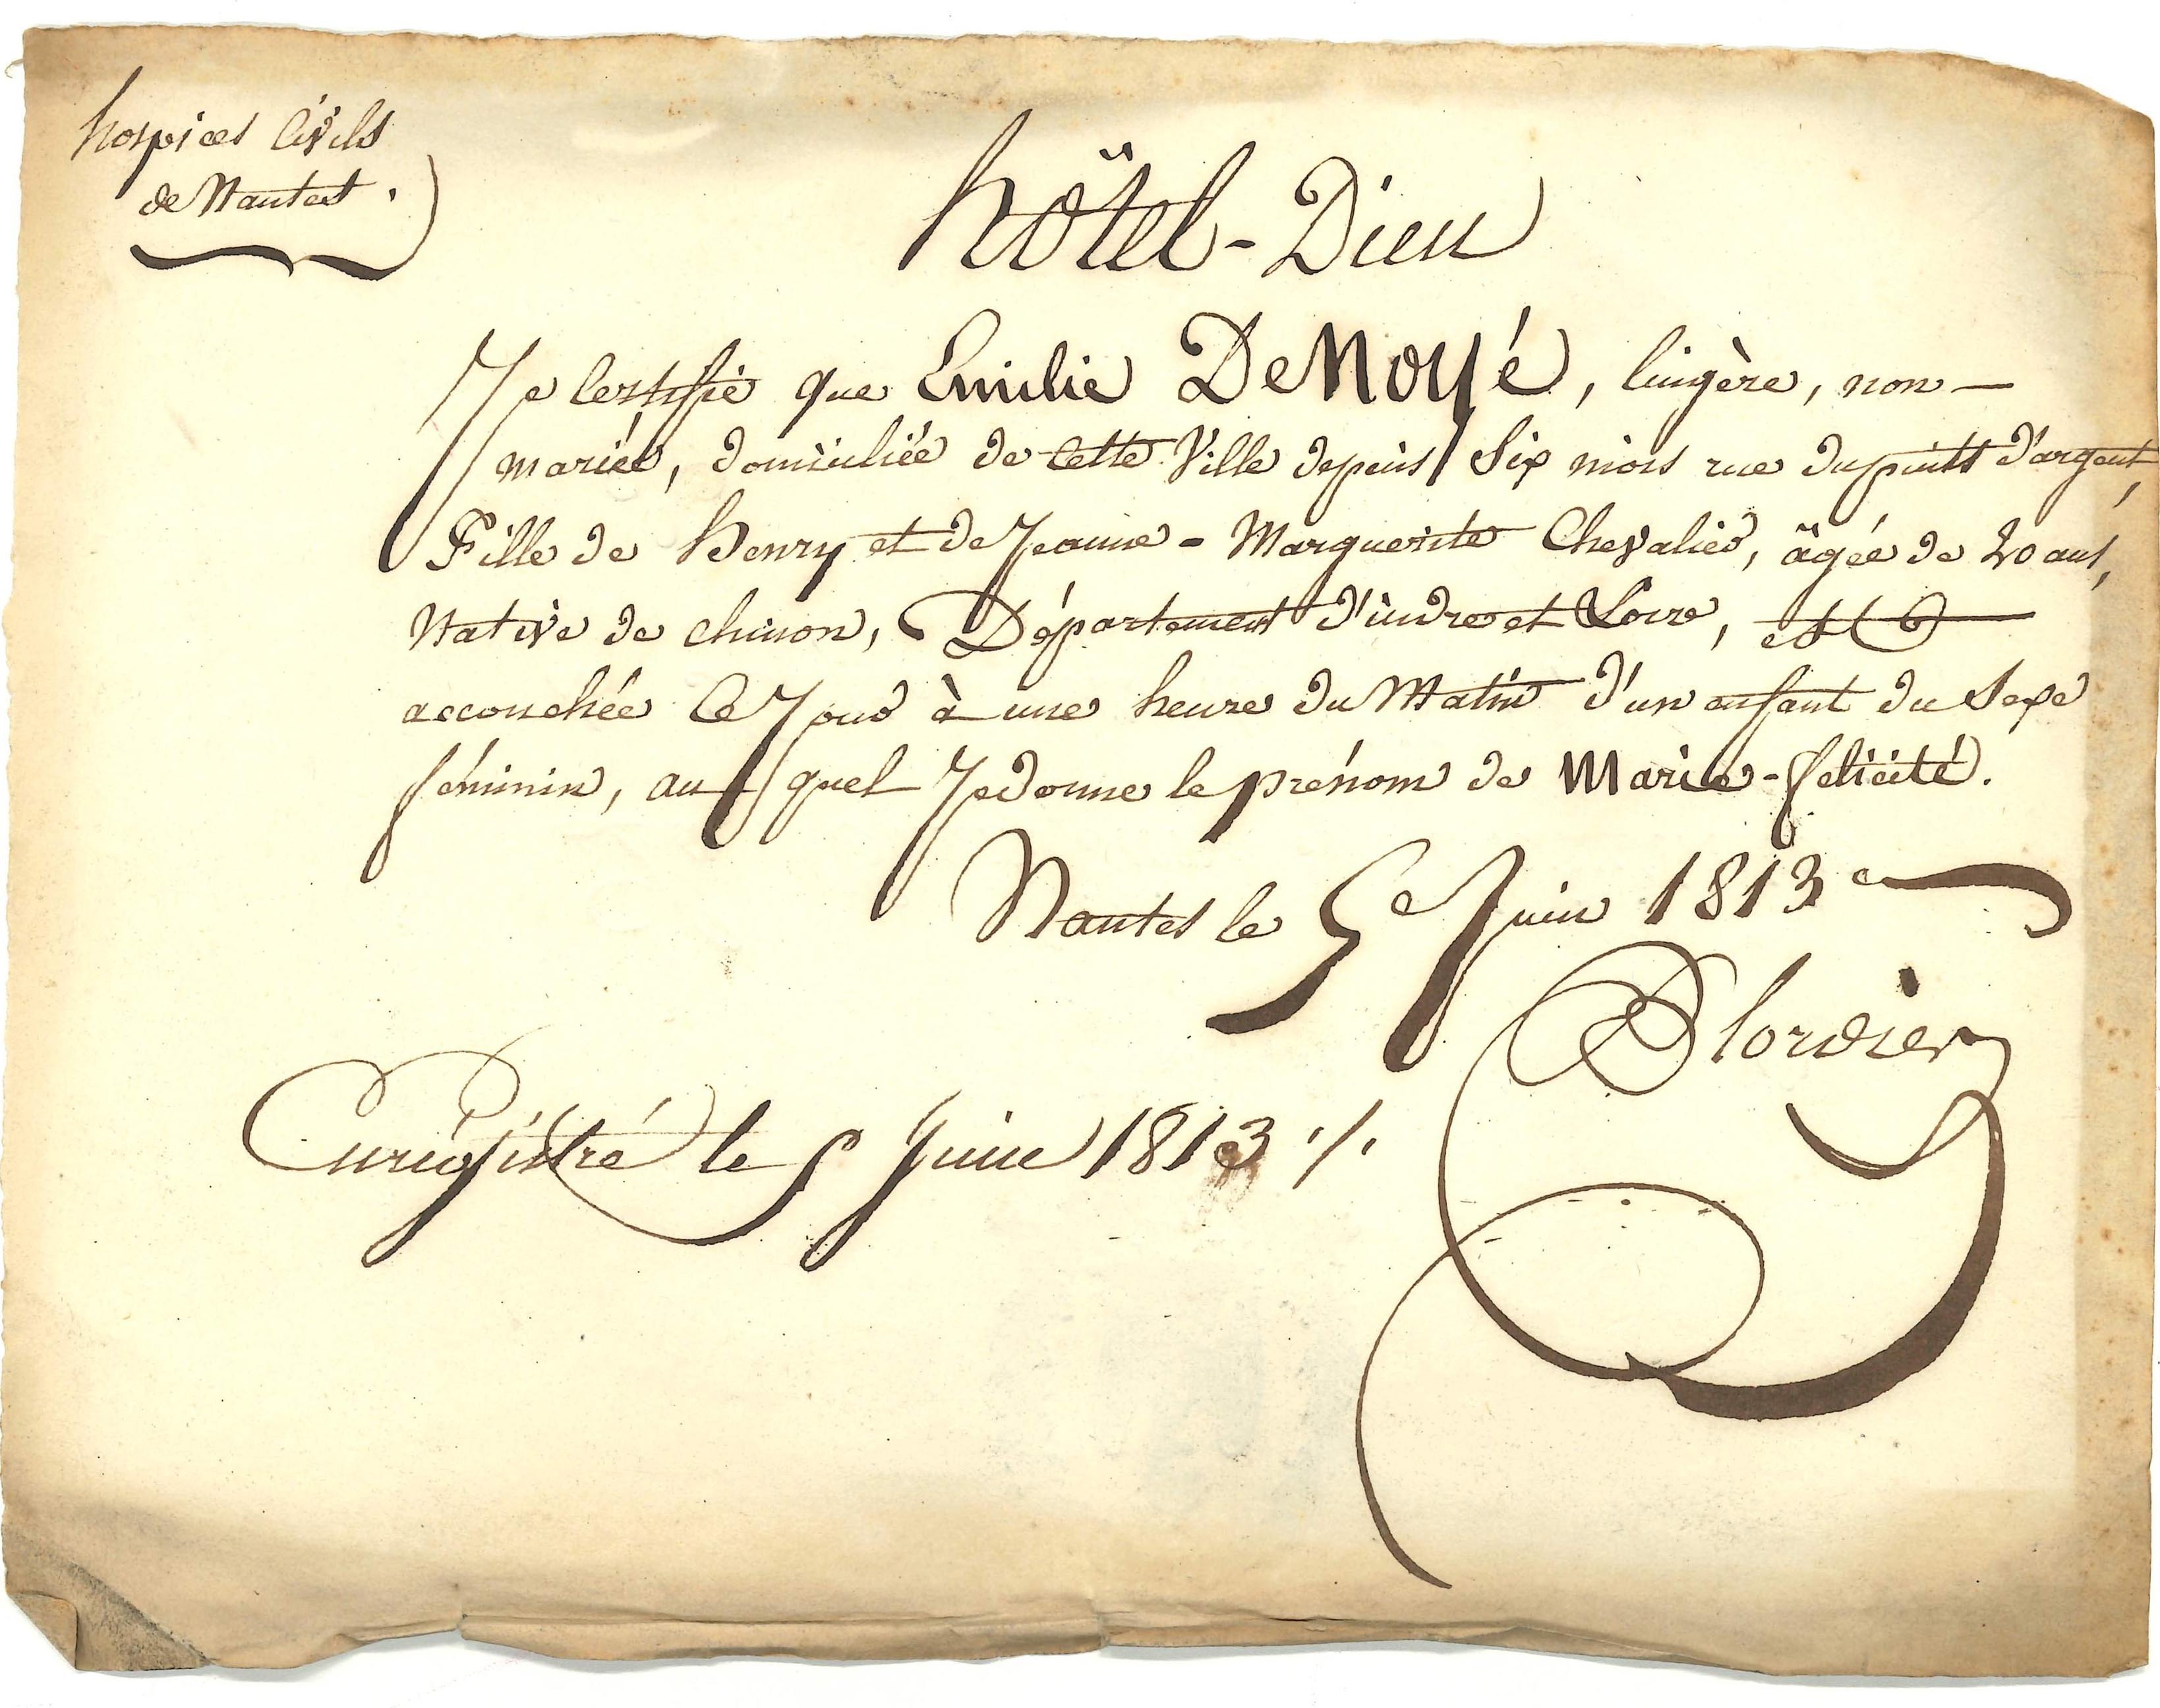 hospices civils
de Nantes.
hôtel-Dieu
Je certifie que Emilie DeNoyé, lingère, non-
mariée, domiciliée de cette Ville depuis Six mois rue du puits d'argent,
Fille de henry et de Jeanne-Marguerite Chevalier, âgée de 20 ans,
Native de chinon, Département d'indre et Loire, est
accouchée ce Jour à une heure du Matin d'un enfant du Sexe
féminin, auquel Je donne le prénom de Marie-félicité.
Nantes le 5e Juin 1813
Enregistré le 5 Juin 1813 ./.